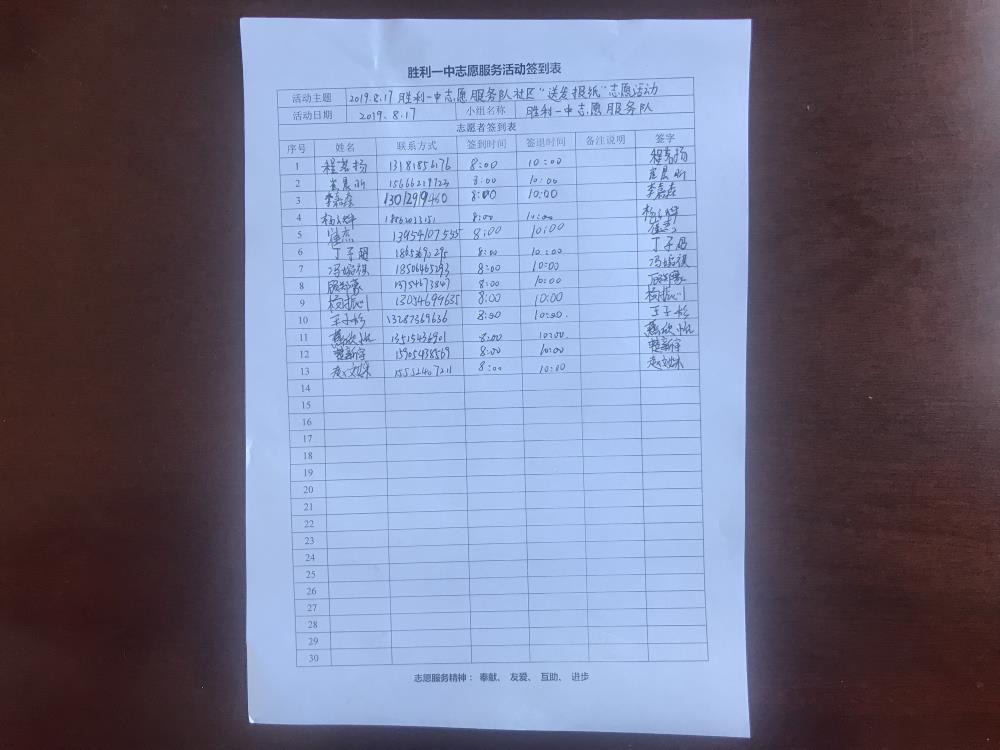 胜利一中志愿服务活动签到表
活动主题 2019.8.17 胜利一中志愿服务队社区"送发报纸"志愿活动
活动日期 2019.8.17 小组名称 胜利一中志愿服务队
志愿者签到表
序号 姓名 联系方式 签到时间 签退时间 备注说明 签字
1 程茗扬 13181856176 8:00 10:00 程茗扬
2 15666219723 8:00 10:00
3 李嘉森 13012919460 8:00 10:00 李嘉森
4 8:00 10:00
5 崔杰 13954107555 8:00 10:00 崔杰
6 丁子 8:00 10:00 丁子
7 冯 18506465293 8:00 10:00 冯
8 13754673847 8:00 10:00
9 杨振 13054699635 8:00 10:00 杨振
10 王子杉 13287369636 8:00 10:00. 王子杉
11 欣 13515436901 8:00 10:00. 欣
12 楚新宇 15905438569 8:00 10:00. 楚新宇
13 赵文姝 15552407211 8:00 10:00 赵文姝
14
15
16
17
18
19
20
21
22
23
24
25
26
27
28
29
30
志愿服务精神： 奉献、 友爱、 互助、 进步